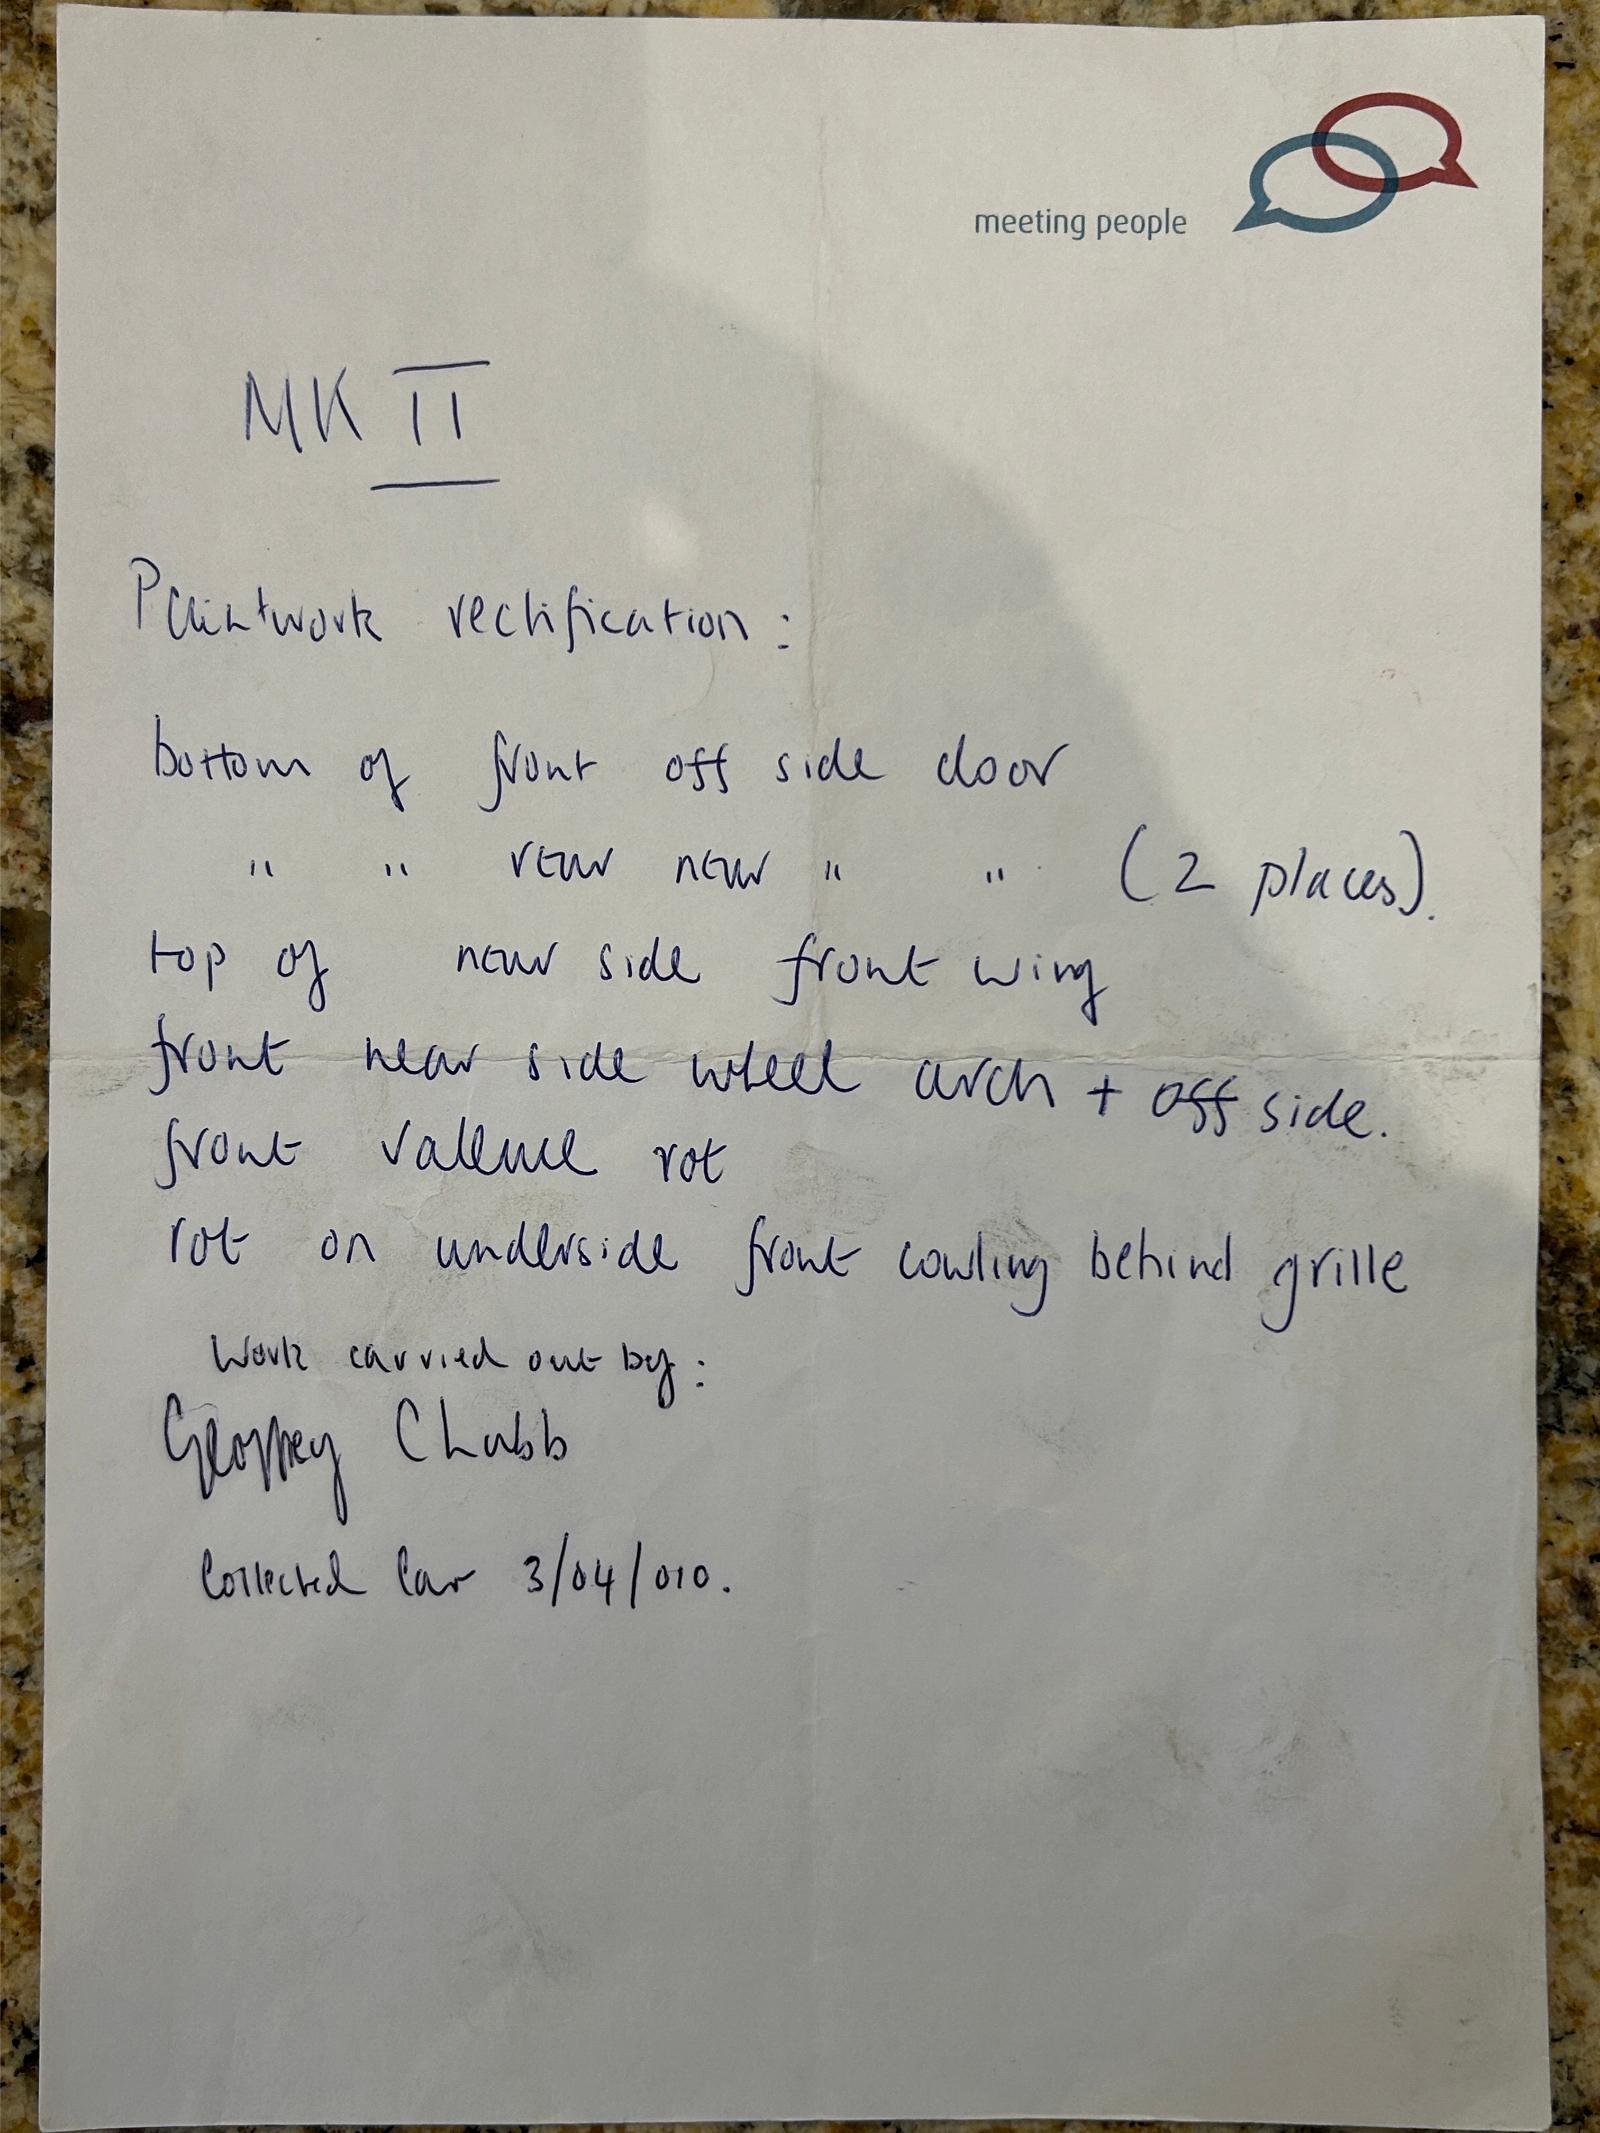 meeting people
MK II
Paintwork rectification :
bottom of front off side door
" " rear near " " (2 places).
top of near side front wing
front near side wheel arch + off side.
front valence rot
rot on underside front cowling behind grille
Work carried out by :
Geoffrey Chubb
Collected Car 3/04/010.